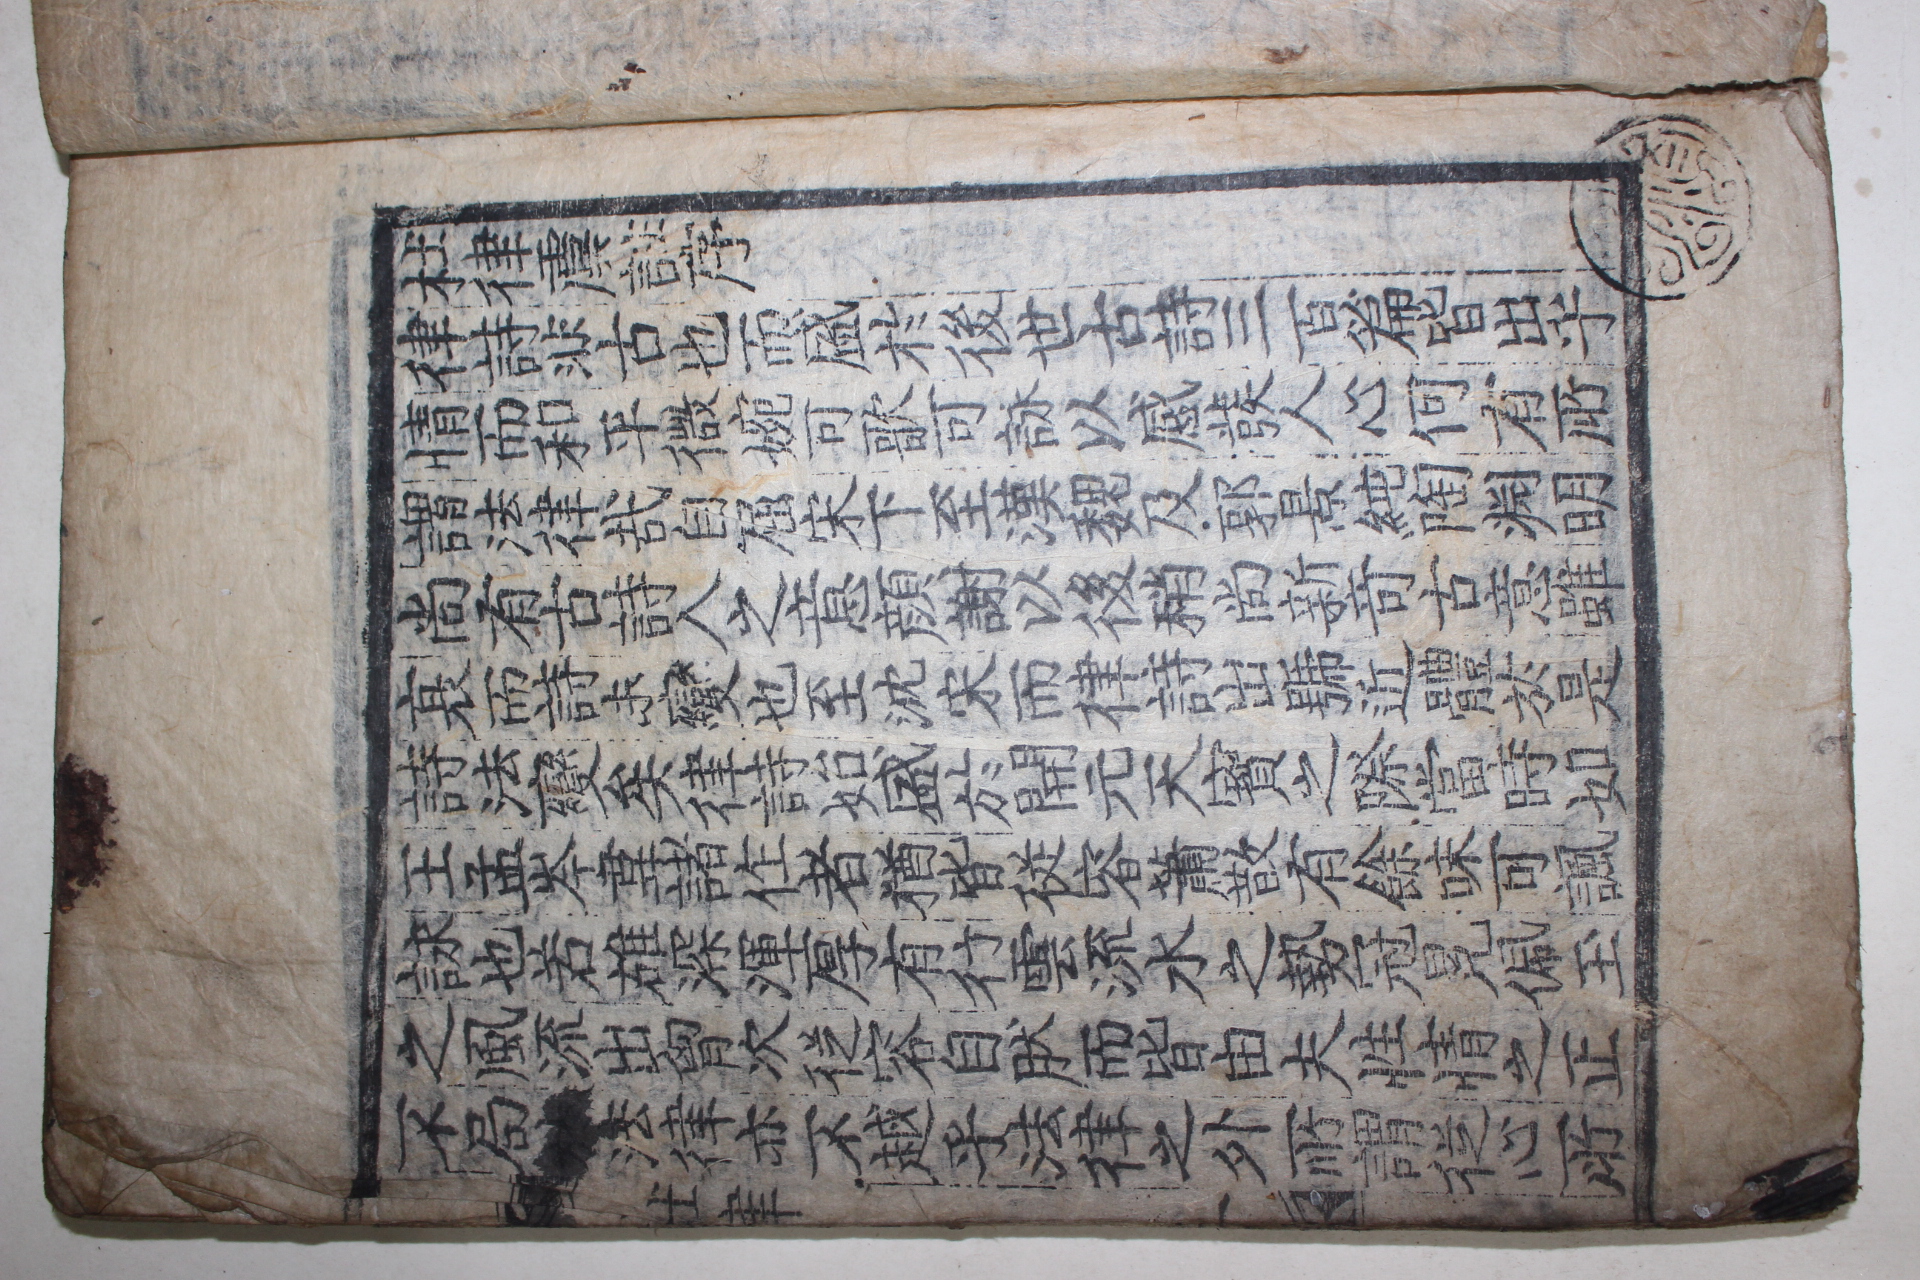 杜律虞註序
律詩非古也而盛於後世古詩三百篇皆出乎
情而和平微婉可歌可詠以感發人心何有所
謂法律哉自屈宋下至漢魏及郭景純陶淵明
尚有古詩人之意顔謝以後稍尚新奇古意雖
衰而詩未變也至沈宋而律詩出號近體於是
詩法變矣律詩始盛於開元天寶之際當時如
王孟岑韋諸作者猶皆従容蕭散有餘味可諷
詠也若雄深渾厚有行雲流水之勢冠冕佩玉
之風流出胷次従容自然而皆由夫性情之正
不局法律亦不越乎法律之外所謂従心所
杜律